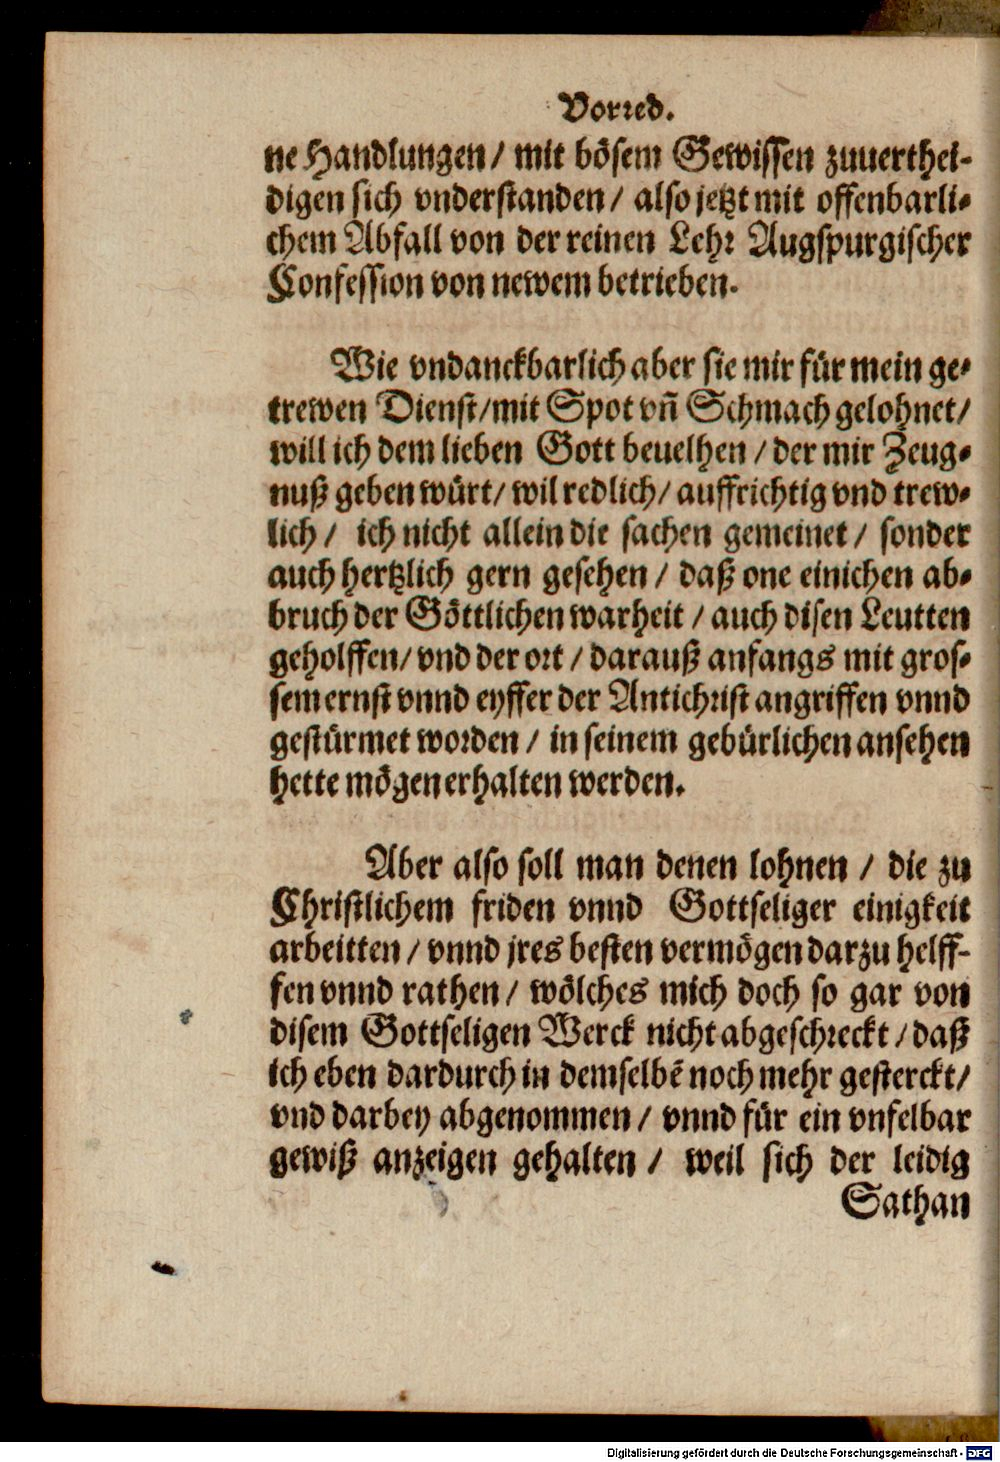 Vorred.
ne Handlungen / mit bösem Gewissen zuuerthei-
digen sich vnderstanden / also jetzt mit offenbarli-
chem Abfall von der reinen Lehr Augspurgischer
Confession von newem betrieben.
Wie vndanckbarlich aber sie mir für mein ge-
trewen Dienst / mit Spot vñ Schmach gelohnet /
will ich dem lieben Gott beuelhen / der mir Zeug-
nuß geben würt / wil redlich / auffrichtig vnd trew-
lich / ich nicht allein die sachen gemeinet / sonder
auch hertzlich gern gesehen / daß one einichen ab-
bruch der Göttlichen warheit / auch disen Leutten
geholffen / vnd der ort / darauß anfangs mit gros-
sem ernst vnnd eyffer der Antichrist angriffen vnnd
gestürmet worden / in seinem gebürlichen ansehen
hette mögen erhalten werden.
Aber also soll man denen lohnen / die zu
Christlichem friden vnnd Gottseliger einigkeit
arbeitten / vnnd jres besten vermögen darzu helff-
fen vnnd rathen / wölches mich doch so gar von
disem Gottseligen Werck nicht abgeschreckt / daß
ich eben dardurch in demselbē noch mehr gesterckt /
vnd darbey abgenommen / vnnd für ein vnfelbar
gewiß anzeigen gehalten / weil sich der leidig
Sathan
Digitalisierung gefördert durch die Deutsche Forschungsgemeinschaft - DFG